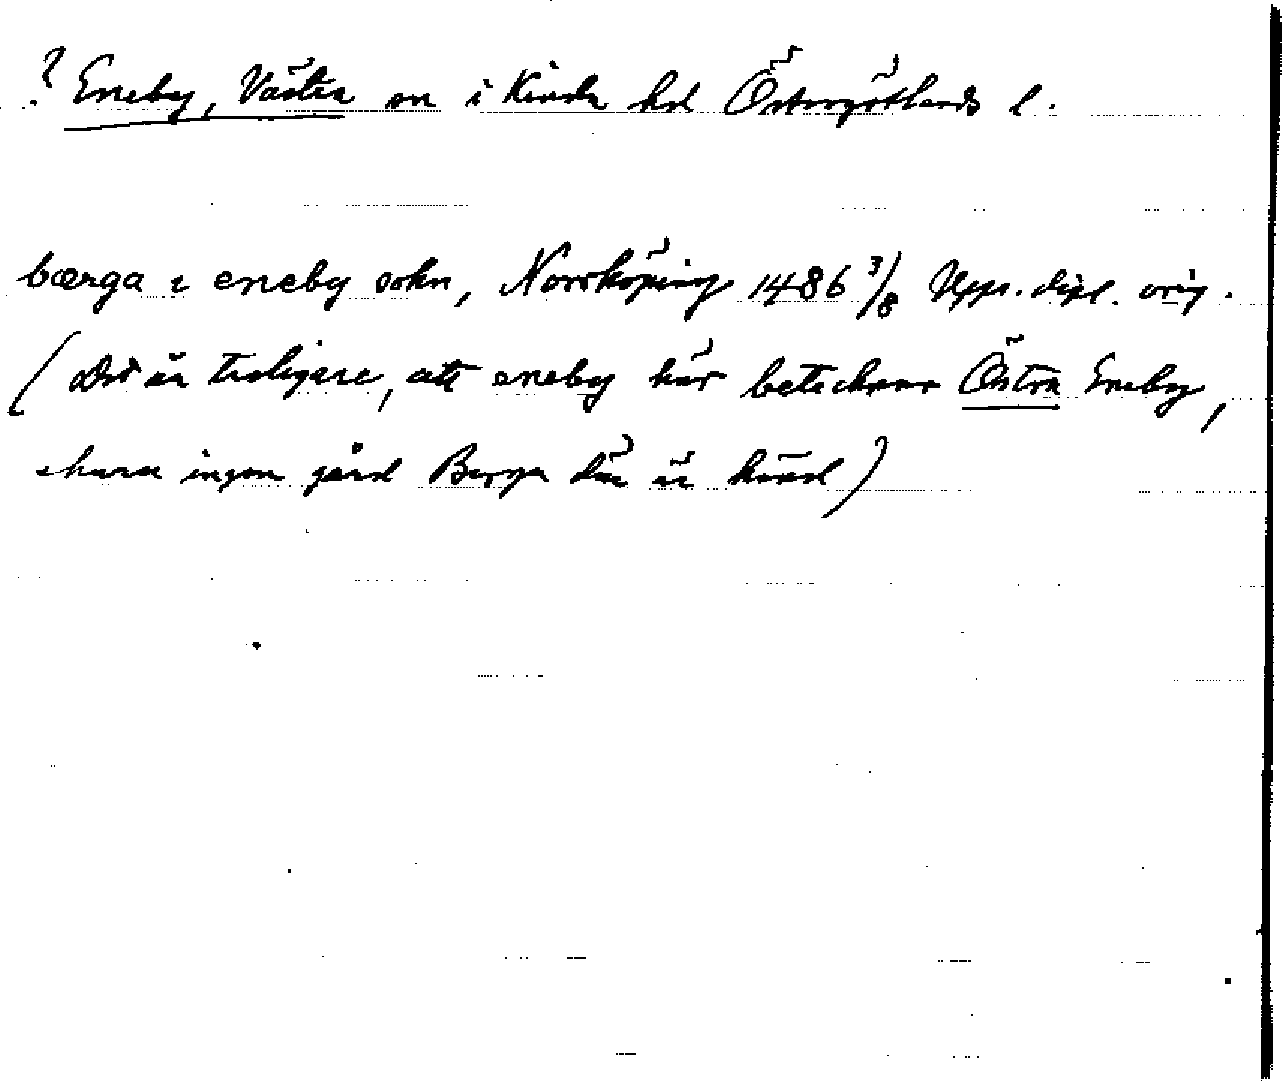 ? Eneby, Västra sn i Kinda hd Östergötlands l.
bærga i eneby sokn, Norrköping 1486 3/8 Upps. dipl. orig.
(Det är troligare, att eneby här betecknar Östra Eneby,
ehuru ingen gård Berga där är känd)